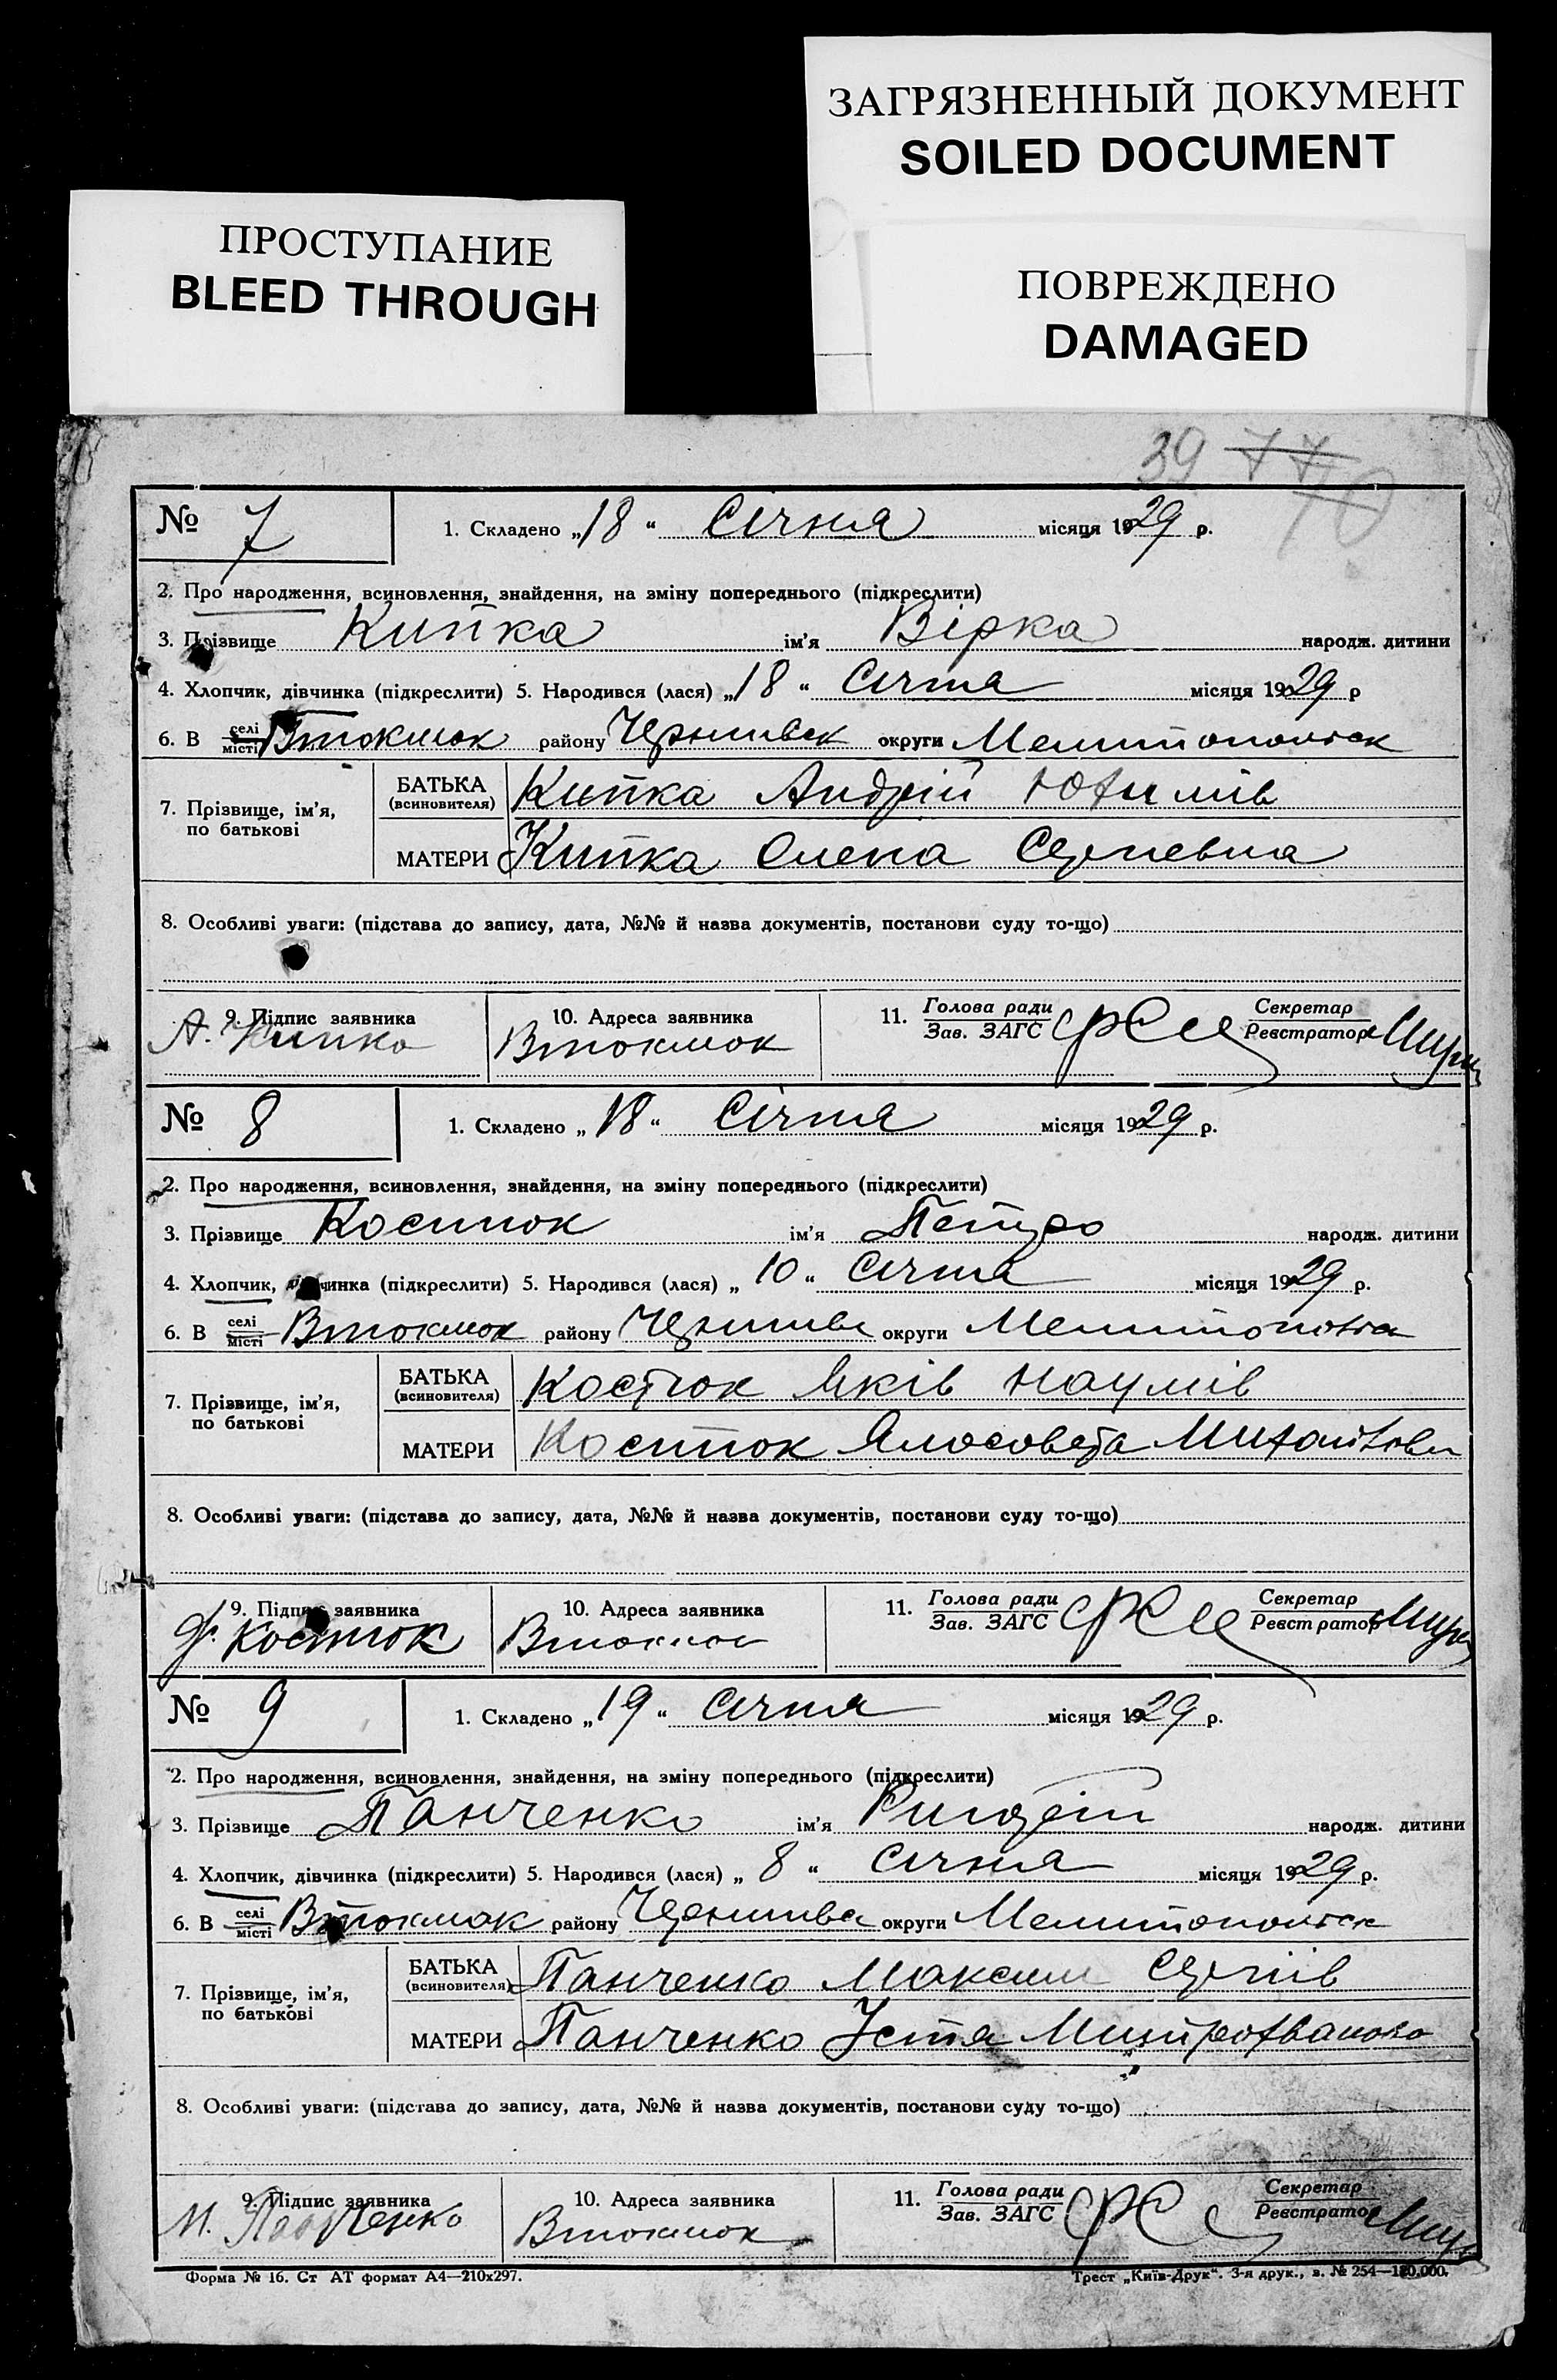 ЗАГРЯЗНЕННЫЙ ДОКУМЕНТ
SOILED DOCUMENT
ПРОСТУПАНИЕ
BLEED THROUGH
ПОВРЕЖДЕНО
DAMAGED
39 77
70
№ 7
1. Складено „18“ Січня місяця 1929 р.
2. Про народження, всиновлення, знайдення, на зміну попереднього (підкреслити)
3. Прізвище Кипка ім'я Вірка народж. дитини
4. Хлопчик, дівчинка (підкреслити) 5. Народився (лася) „18“ Січня місяця 1929 р
6. В селі/місті Втокмок району Чернивск округи Мелитопольск
7. Прізвище, ім'я, по батькові
БАТЬКА (всиновителя) Кипка Андрій Юхимів
МАТЕРИ Кипка Олена Сергіевна
8. Особливі уваги: (підстава до запису, дата, №№ й назва документів, постанови суду то-що)
9. Підпис заявника А. Кипко
10. Адреса заявника Втокмок
11. Голова ради/Зав. ЗАГС
Секретар/Реєстратор
№ 8
1. Складено „18“ Січня місяця 1929 р.
2. Про народження, всиновлення, знайдення, на зміну попереднього (підкреслити)
3. Прізвище Костюк ім'я Петро народж. дитини
4. Хлопчик, дівчинка (підкреслити) 5. Народився (лася) „10“ Січня місяця 1929 р.
6. В селі/місті Втокмок району округи
7. Прізвище, ім'я, по батькові
БАТЬКА (всиновителя) Костюк Яків Наумів
МАТЕРИ Костюк
8. Особливі уваги: (підстава до запису, дата, №№ й назва документів, постанови суду то-що)
9. Підпис заявника Я. Костюк
10. Адреса заявника Втокмок
11. Голова ради/Зав. ЗАГС
Секретар/Реєстратор
№ 9
1. Складено „19“ Січня місяця 1929 р.
2. Про народження, всиновлення, знайдення, на зміну попереднього (підкреслити)
3. Прізвище Панченко ім'я народж. дитини
4. Хлопчик, дівчинка (підкреслити) 5. Народився (лася) „8“ Січня місяця 1929 р.
6. В селі/місті Втокмак району округи Мелитопольск
7. Прізвище, ім'я, по батькові
БАТЬКА (всиновителя) Панченко Максим Сергіів
МАТЕРИ Панченко Устя
8. Особливі уваги: (підстава до запису, дата, №№ й назва документів, постанови суду то-що)
9. Підпис заявника М. Панченко
10. Адреса заявника Втокмок
11. Голова ради/Зав. ЗАГС
Секретар/Реєстратор
Форма № 16. Ст АТ формат А4—210х297.
Трест „Київ-Друк“. 3-я друк., з. № 254—180.000.